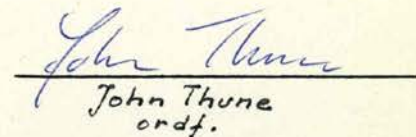 John Thune
John Thune
ordf.